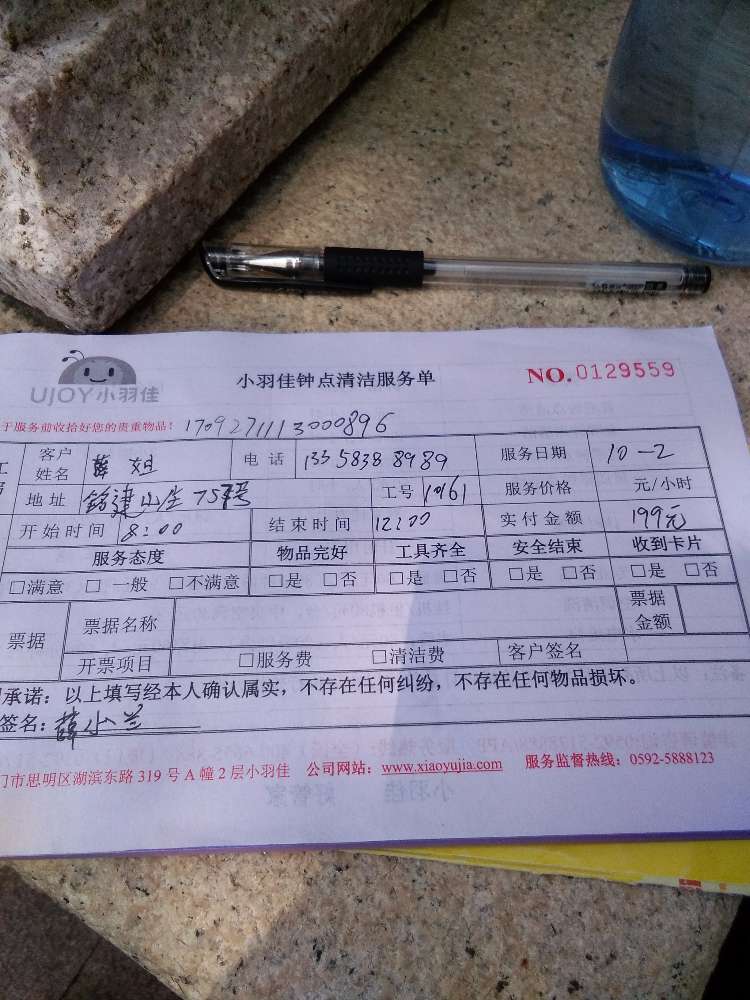 UJOY小羽佳
小羽佳钟点清洁服务单
NO.0129559
于服务前收拾好您的贵重物品！ 1709271113000896
客户姓名 薛姐 电话 133 5838 8989 服务日期 10-2
地址 铭建山庄 75号 工号 10161 服务价格 元/小时
开始时间 8:00 结束时间 12:00 实付金额 199元
服务态度 物品完好 工具齐全 安全结束 收到卡片
□满意 □一般 □不满意 □是 □否 □是 □否 □是 □否 □是 □否
票据 票据名称 票据金额
开票项目 □服务费 □清洁费 客户签名
承诺：以上填写经本人确认属实，不存在任何纠纷，不存在任何物品损坏。
签名：薛小兰
门市思明区湖滨东路 319 号 A 幢 2 层小羽佳 公司网站：www.xiaoyujia.com 服务监督热线：0592-5888123